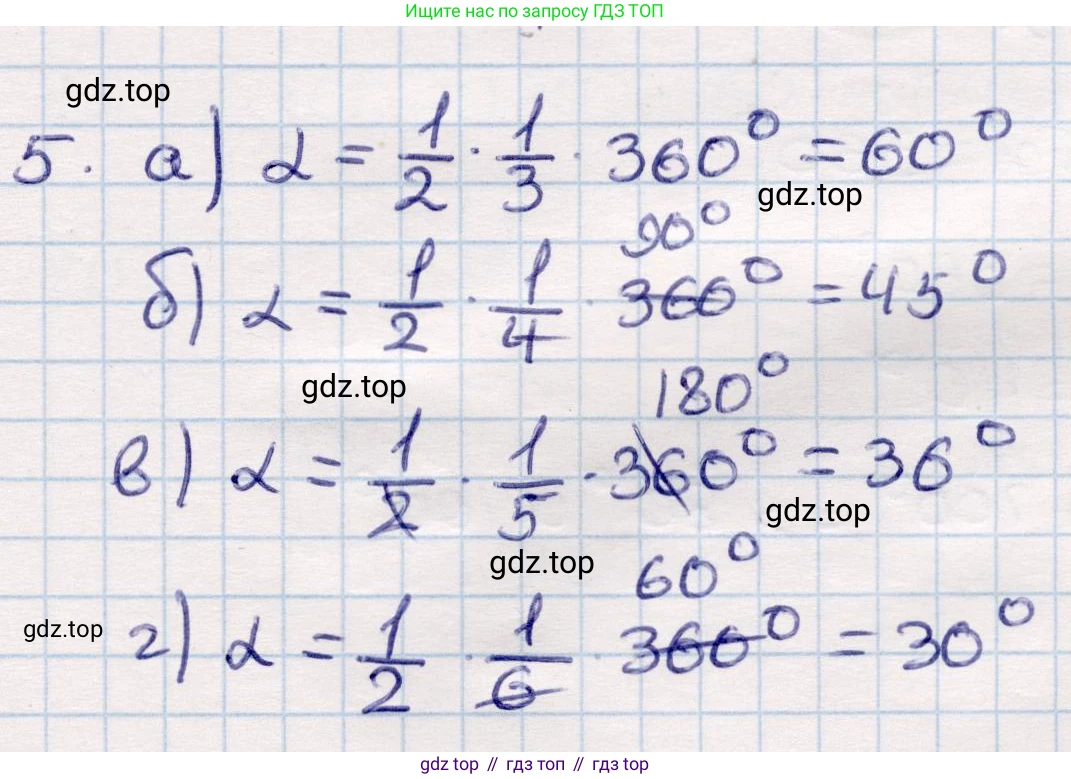 Ищите нас по запросу ГДЗ ТОП
gdz.top
5. а) α = 1/2 · 1/3 · 360° = 60°
gdz.top
90°
б) α = 1/2 · 1/4 · 360° = 45°
gdz.top
180°
в) α = 1/2 · 1/5 · 360° = 36°
gdz.top
gdz.top
60°
gdz.top
г) α = 1/2 · 1/6 · 360° = 30°
gdz top // гдз топ // gdz top